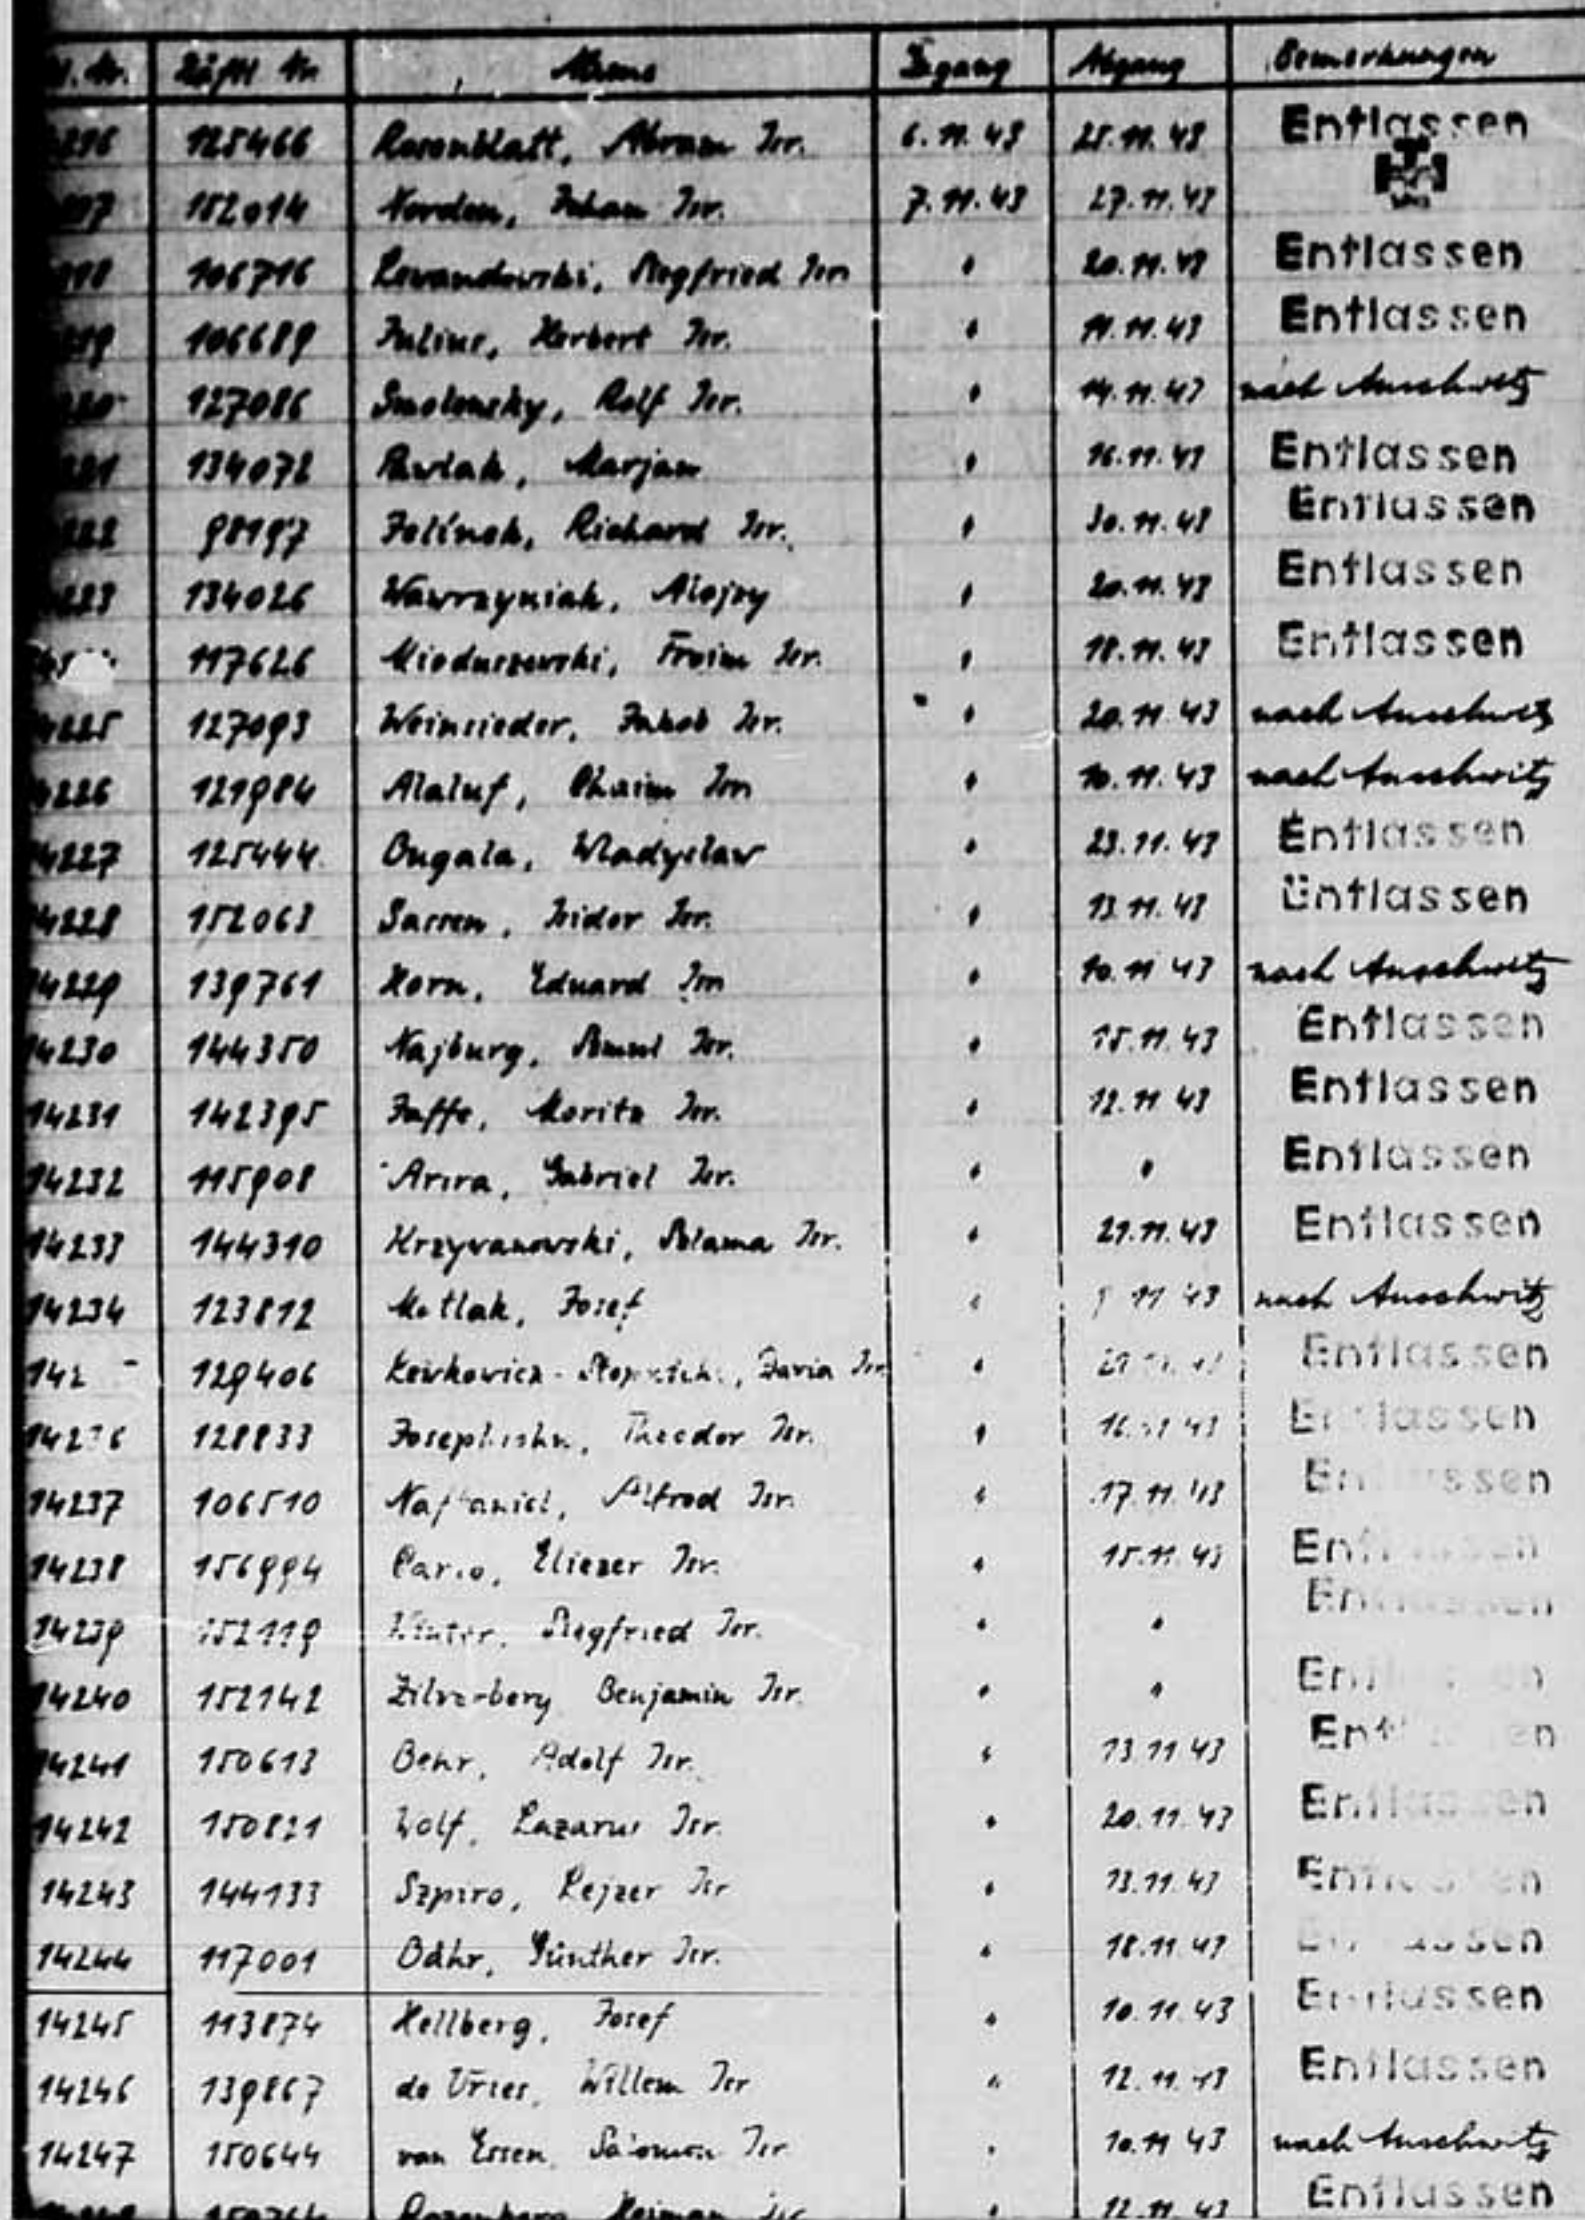 Häftl Nr. Name Zugang Abgang Bemerkungen
125466 Rosenblatt, Abram Isr. 6.11.43 25.11.43 Entlassen
152014 Norden, Isr. 7.11.43 27.11.43
106716 Lewandowski, Siegfried Isr. " 20.11.43 Entlassen
106689 Julius, Herbert Isr. " 11.11.43 Entlassen
127086 Smolensky, Rolf Isr. " 14.11.43 nach Auschwitz
134072 Pawlak, Marjan " 16.11.43 Entlassen
98197 Richard Isr. " 30.11.43 Entlassen
134026 Wawrzyniak, Alojzy " 20.11.43 Entlassen
117626 Mioduszewski, Froim Isr. " 18.11.43 Entlassen
127093 Weinrieder, Jakob Isr. " 20.11.43 nach Auschwitz
14226 121984 Alaluf, Chaim Isr. " 10.11.43 nach Auschwitz
14227 125444 Ongala, Wladyslaw " 23.11.43 Entlassen
14228 152063 Sarren, Isidor Isr. " 13.11.43 Entlassen
14229 139761 Horn, Eduard Isr. " 10.11.43 nach Auschwitz
14230 144350 Najburg, Isr. " 15.11.43 Entlassen
14231 142395 Jaffe, Moritz Isr. " 12.11.43 Entlassen
14232 115908 Gabriel Isr. " " Entlassen
14233 144310 Krzyvanowski, Szlama Isr. " 21.11.43 Entlassen
14234 123812 Matlak, Josef " 11.43 nach Auschwitz
142 129406 Isr. " Entlassen
14236 128833 Josephsohn, Theodor Isr. " 16.11.43 Entlassen
14237 106510 Naftaniel, Alfred Isr. " 17.11.43 Entlassen
14238 156994 Eliezer Isr. " 15.11.43 Entlassen
14239 152119 Winter, Siegfried Isr. " " Entlassen
14240 152142 Zilverberg Benjamin Isr. " " Entlassen
14241 150613 Behr, Adolf Isr. " 13.11.43 Entlassen
14242 150821 Wolf, Lazarus Isr. " 20.11.43 Entlassen
14243 144133 Szpiro, Lejzer Isr " 13.11.43 Entlassen
14244 117001 Bähr, Günther Isr. " 18.11.43 Entlassen
14245 113874 Hellberg, Josef " 10.11.43 Entlassen
14246 139867 de Vries, Willem Isr " 12.11.43 Entlassen
14247 150644 van Essen, Salomon Isr " 10.11.43 nach Auschwitz
Rozenberg, Isr. " 12.11.43 Entlassen